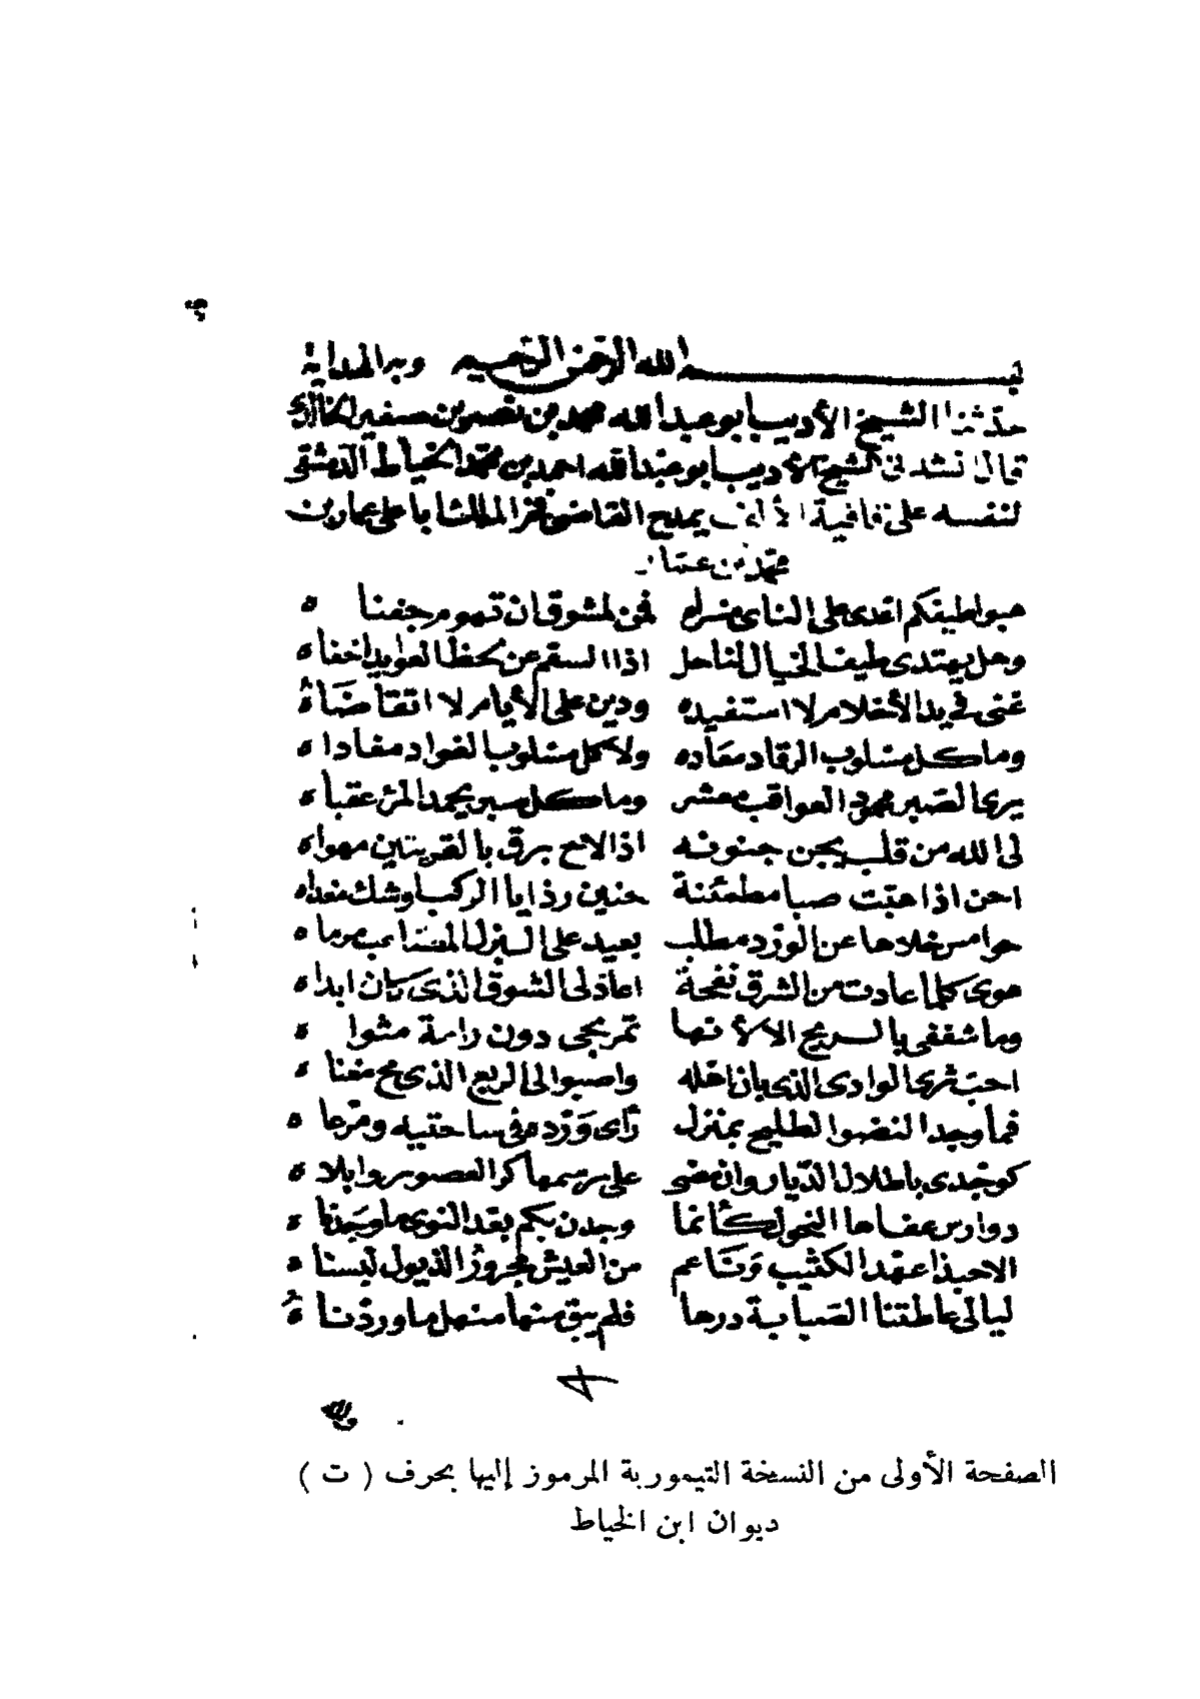 بسم الله الرحمن الرحيم وبه الهداية
حدثنا الشيخ الأديب ابو عبد الله محمد بن نصر بن صغير الخالدى
قال انشدنى الشيخ الأديب ابو عبد الله احمد بن محمد الخياط الدمشقى
لنفسه على قافية الألف يمدح القاضى فخر الملك ابا على عمار بن
محمد بن عمار
هبوا طيفكم اعدى على الناى مسراه فمن لمشوق ان تهوم جفناه
وهل يهتدى طيف الخيال لناحل اذا السقم عن لحظ العوايد اخفاه
غنى فى يد الأحلام لا استفيده ودين على الأيام لا اتقاضاهُ
وما كل مسلوب الرقاد معاده ولا كل مسلوب الفواد مفاداه
يرى الصبر محمود العواقب معشر وما كل صبر يحمد المرء عقباه
لى الله من قلب يجن جنونه اذا لاح برق بالقريتين مهواه
احن اذا هبت صبا مطمئنة حنين رذايا الركب اوشك مغداه
خوامس خلاها عن الورد مطلب بعيد على البزل المصاعب مرماه
هوى كلما عادت من الشرق نفحة اعاد لى الشوق الذى كان ابداه
وما شغفى بالريح الا لأنها تمر بحى دون رامة مثواه
احب ثرى الوادى الذى بان اهله واصبوا الى الربع الذى مح مغناه
فما وجد النضو الطليح بمنزل رأى وَرْده فى ساحتيه ومرعاه
كوجدى باطلال الديار وان مضى على رسمها كر العصور وابلاه
دوارس عفاها النحول كأنما وجدن بكم بعد النوى ما وجدناه
الا حبذا عهد الكثيب وناعم من العيش مجرور الذيول لبسناه
ليالى عاطتنا الصبابة درها فلم يبق منها منهل ما وردناهُ
الصفحة الأولى من النسخة التيمورية المرموز إليها بحرف ( ت )
ديوان ابن الخياط